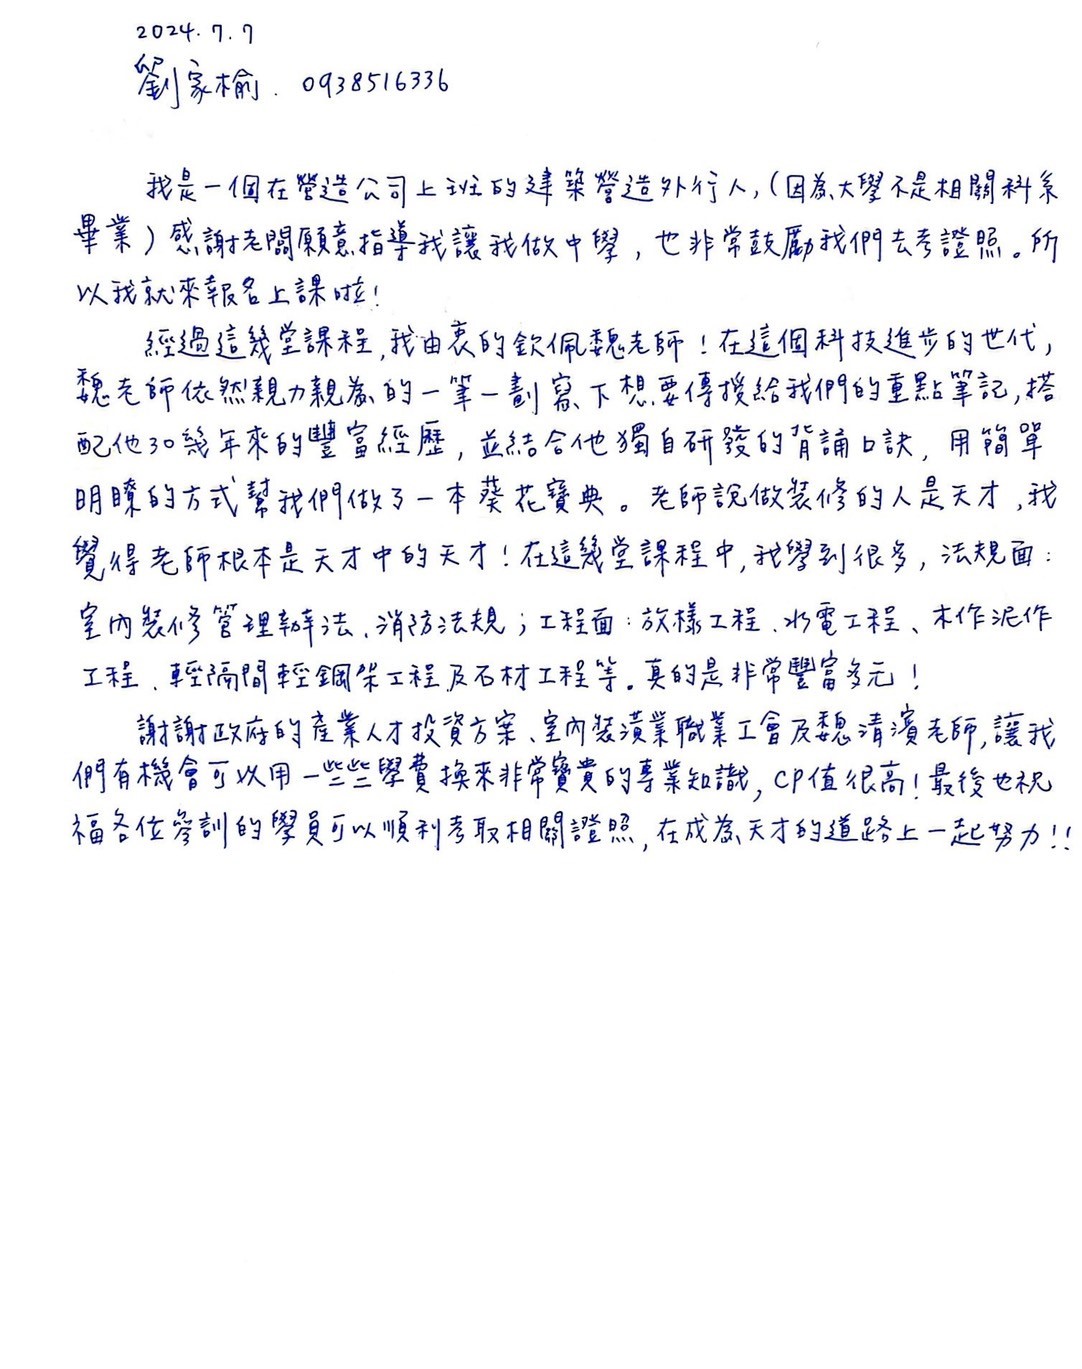 2024.7.7
劉家榆. 0938516336
我是一個在營造公司上班的建築營造外行人,(因為大學不是相關科系
畢業)感謝老闆願意指導我讓我做中學,也非常鼓勵我們去考證照。所
以我就來報名上課啦!
經過這幾堂課程,我由衷的欽佩魏老師!在這個科技進步的世代,
魏老師依然親力親為的一筆一劃寫下想要傳授給我們的重點筆記,搭
配他30幾年來的豐富經歷,並結合他獨自研發的背誦口訣,用簡單
明瞭的方式幫我們做了一本葵花寶典。老師說做裝修的人是天才,我
覺得老師根本是天才中的天才!在這幾堂課程中,我學到很多,法規面:
室內裝修管理辦法、消防法規;工程面:放樣工程、水電工程、木作泥作
工程、輕隔間輕鋼架工程及石材工程等。真的是非常豐富多元!
謝謝政府的產業人才投資方案、室內裝潢業職業工會及魏清濱老師,讓我
們有機會可以用一些些學費換來非常寶貴的專業知識,CP值很高!最後也祝
福各位參訓的學員可以順利考取相關證照,在成為天才的道路上一起努力!!